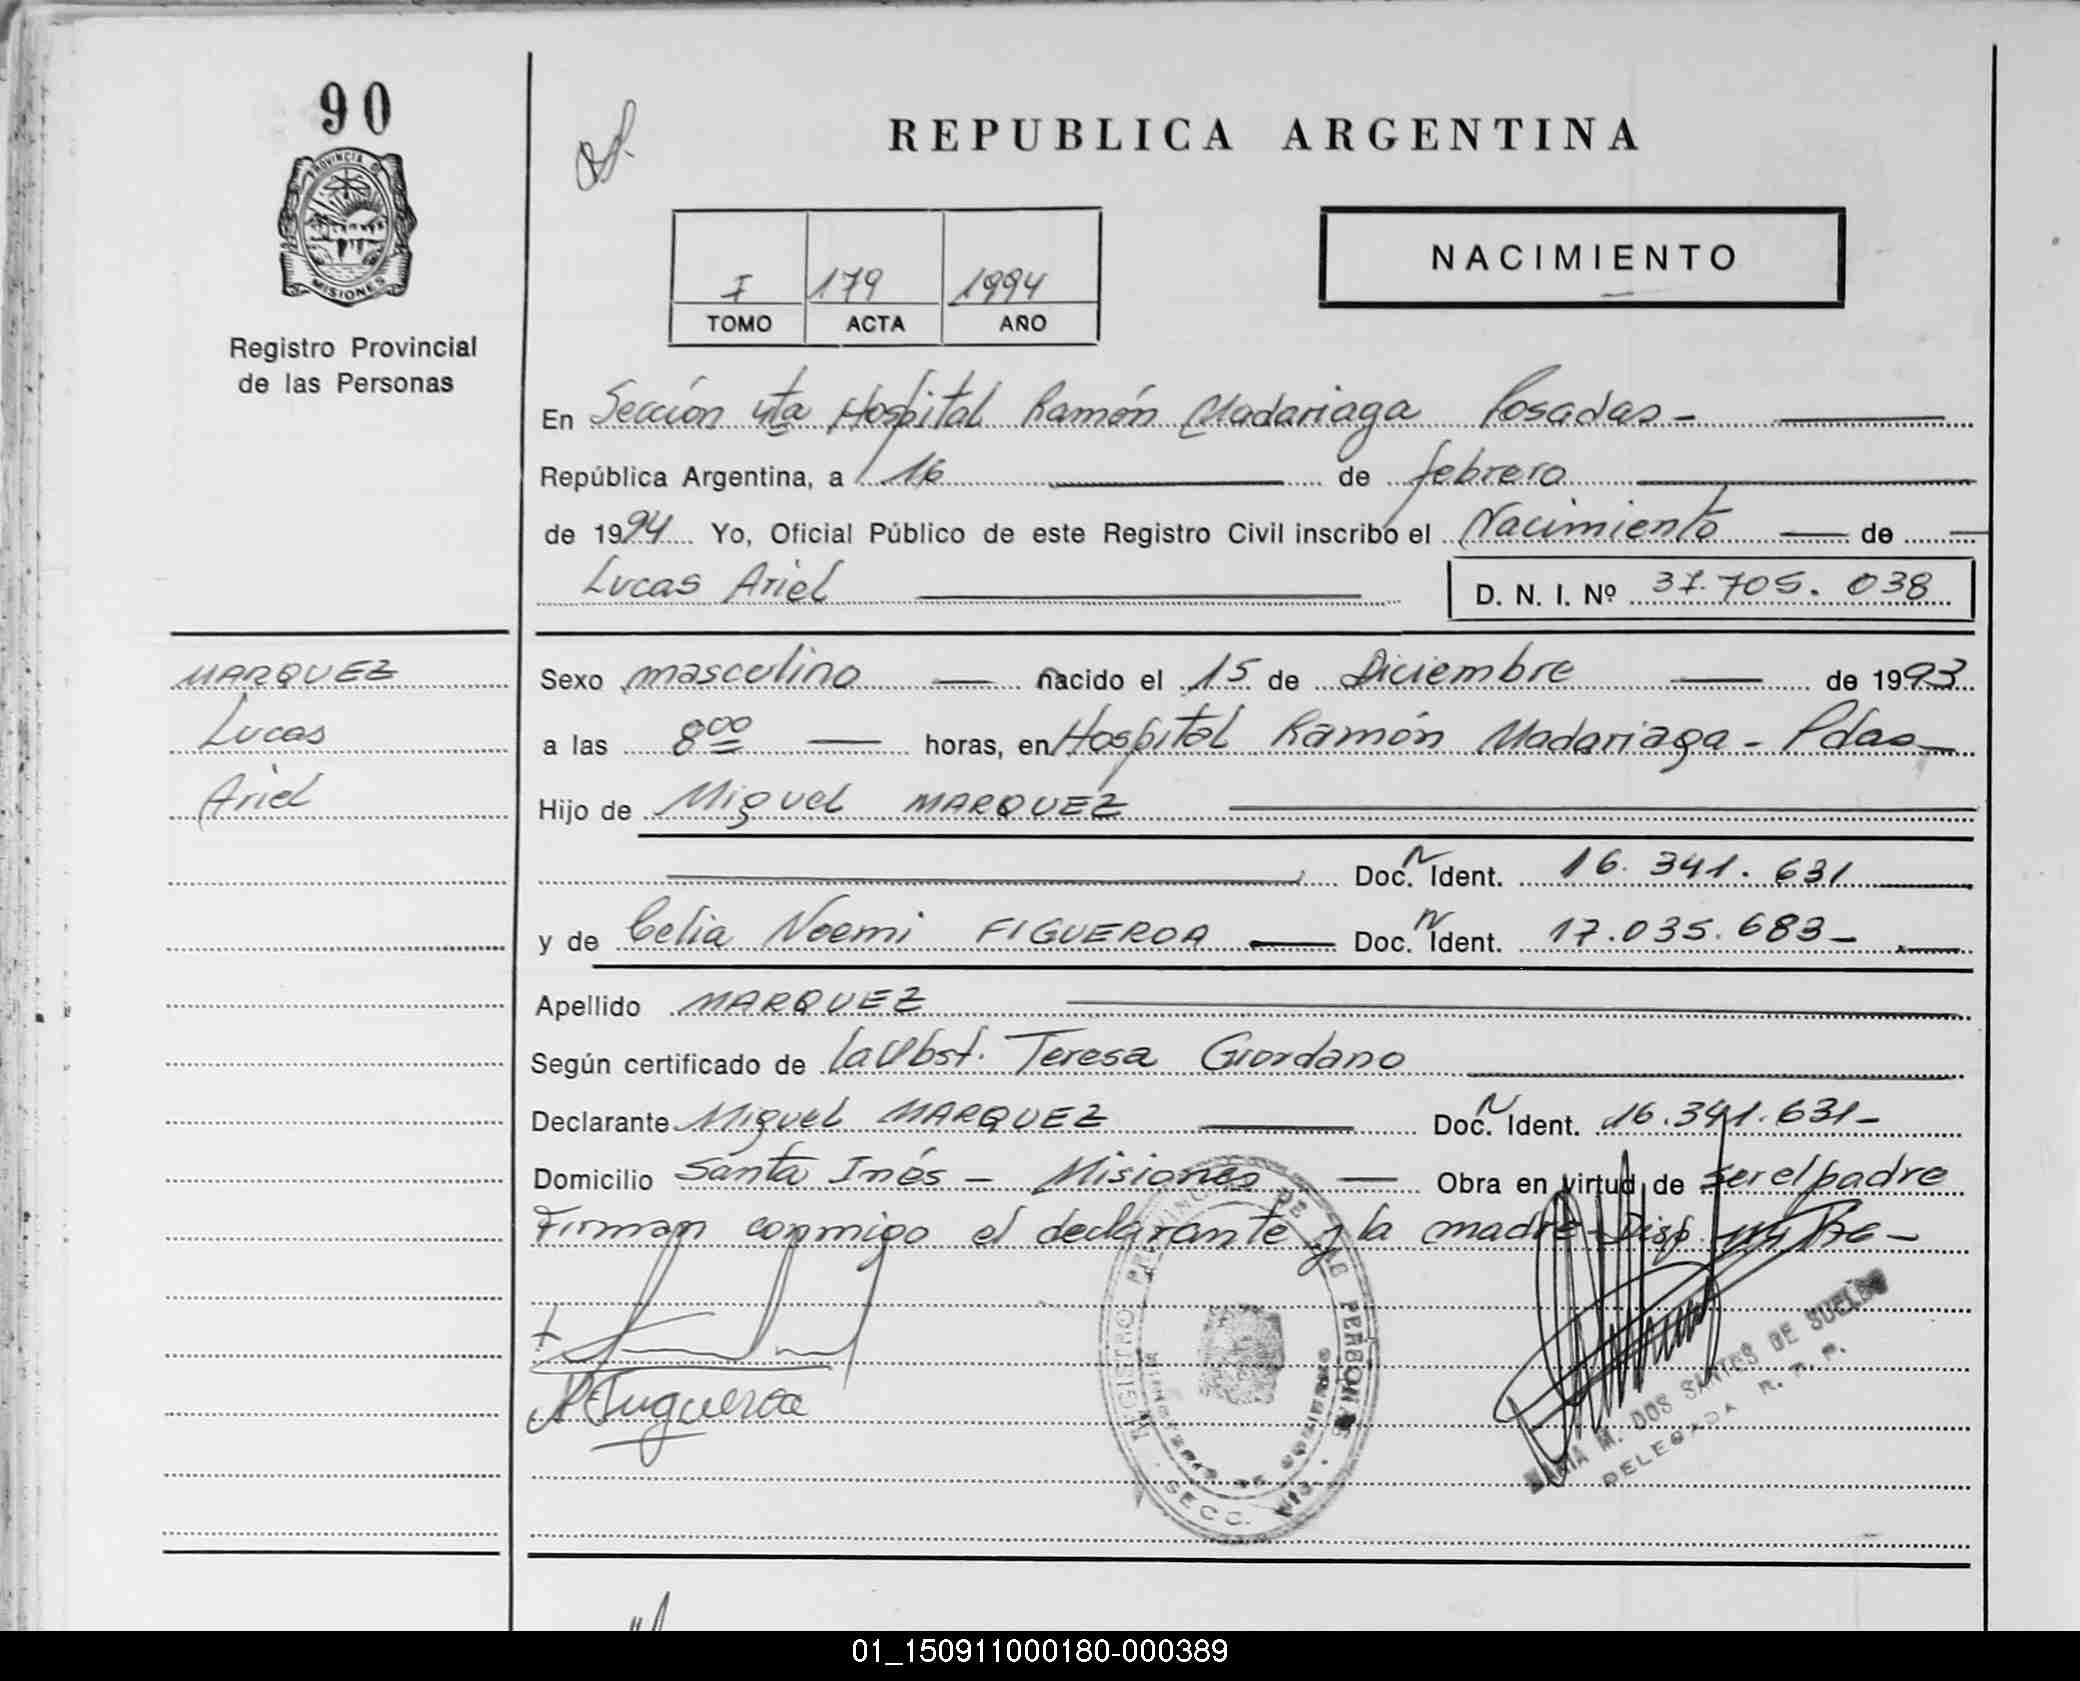 90
PROVINCIA DE
MISIONES
Registro Provincial
de las Personas
REPUBLICA ARGENTINA
NACIMIENTO
I 179 1994
TOMO ACTA AÑO
En Sección 4ta Hospital Ramón Madariaga Posadas -
República Argentina, a 16 de febrero
de 1994 Yo, Oficial Público de este Registro Civil inscribo el Nacimiento de
Lucas Ariel D. N. I. Nº 37.705.038
MARQUEZ
Lucas
Ariel
Sexo masculino nacido el 15 de Diciembre de 1993
a las 8 00 horas, en Hospital Ramón Madariaga - Pdas
Hijo de Miguel MARQUEZ
Doc. N Ident. 16.341.631
y de Celia Noemi FIGUEROA Doc. N Ident. 17.035.683 -
Apellido MARQUEZ
Según certificado de la Obst. Teresa Giordano
Declarante Miguel MARQUEZ Doc. N Ident. 16.341.631 -
Domicilio Santa Inés - Misiones Obra en virtud de ser el padre
Firman conmigo el declarante y la madre - Disp.
REGISTRO PROVINCIAL DE LAS PERSONAS
SECC.
MARIA M. DOS SANTOS DE SUELDO
DELEGADA R. P. P.
01_150911000180-000389